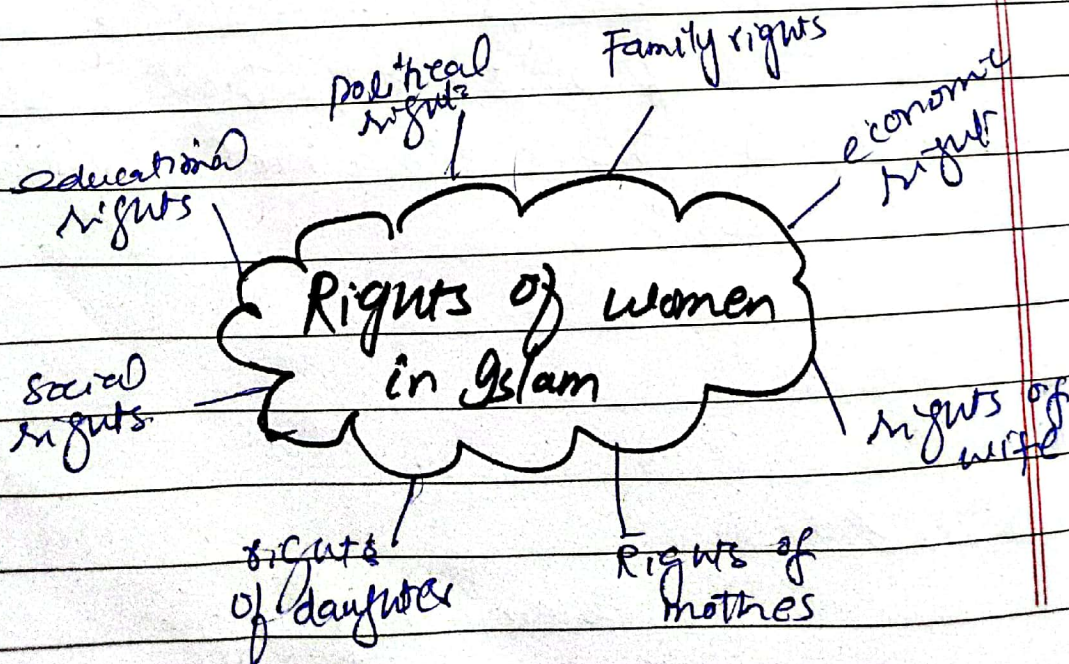 Family rights
political
rights
economic
right
educational
rights
Rights of women
in Islam
social
rights
rights of
wife
rights
of daughter
Rights of
mothes